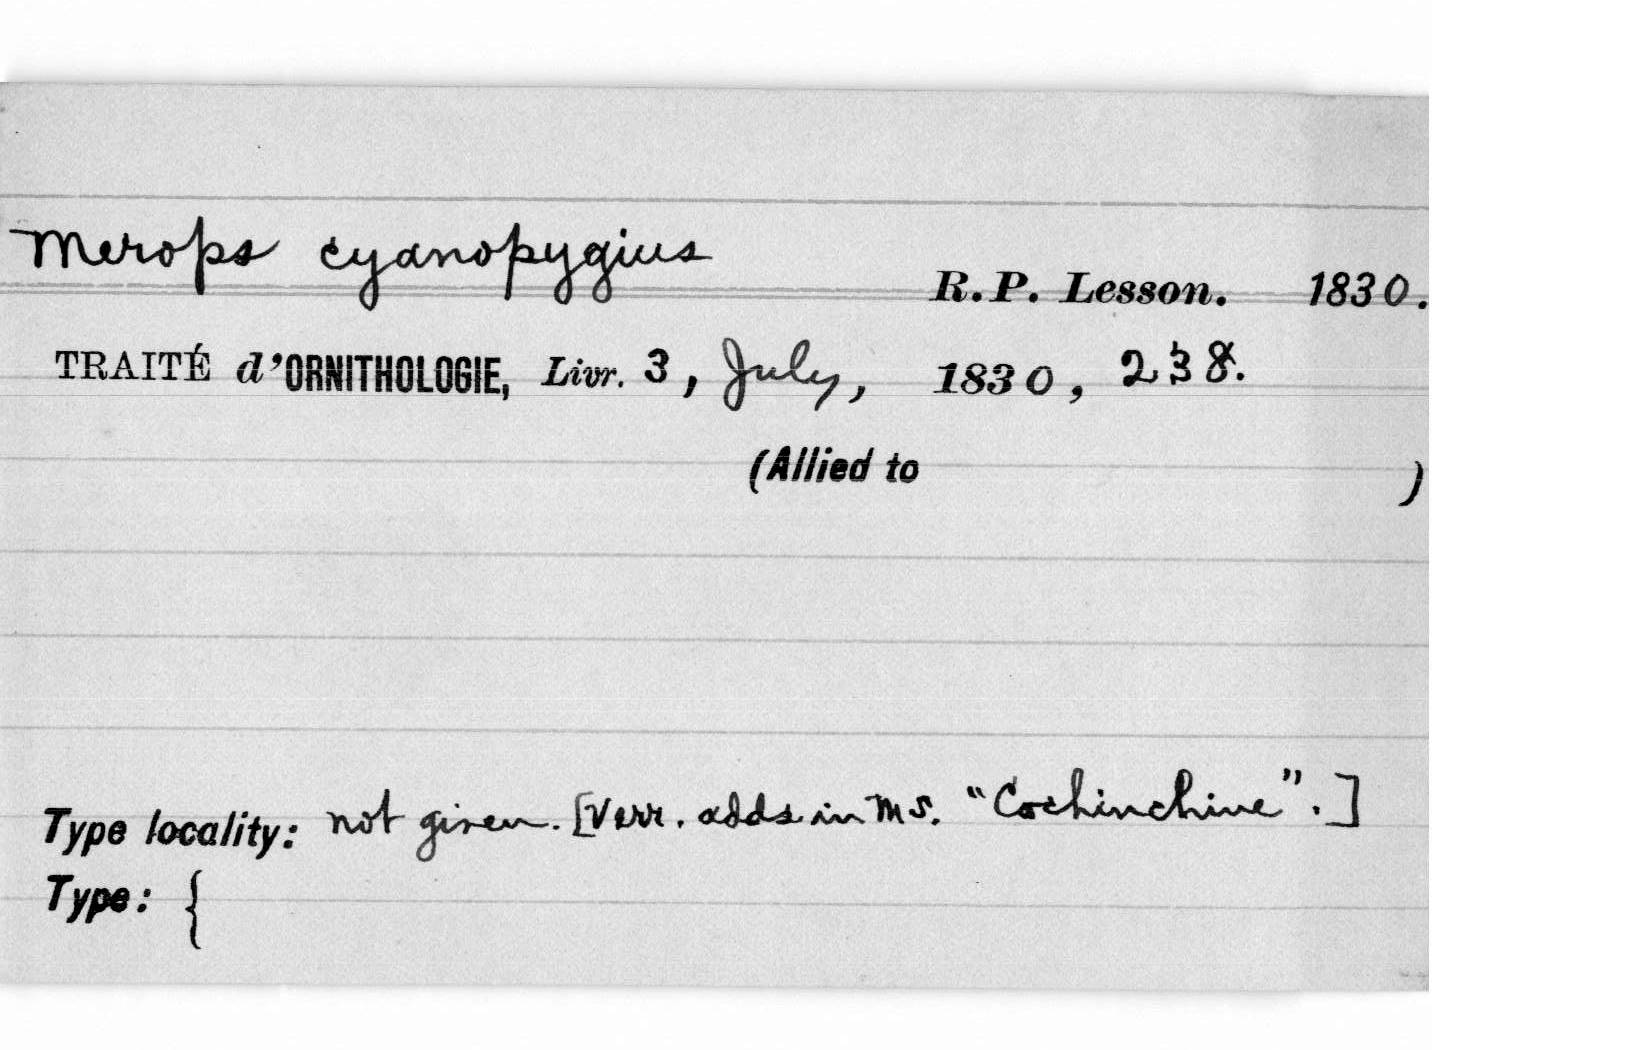 Merops cyanopygius
R.P. Lesson. 1830.
TRAITÉ d'ORNITHOLOGIE, Livr. 3, July, 1830, 238.
(Allied to )
Type locality: not given. [Verr. adds in MS. "Cochinchine".]
Type: {